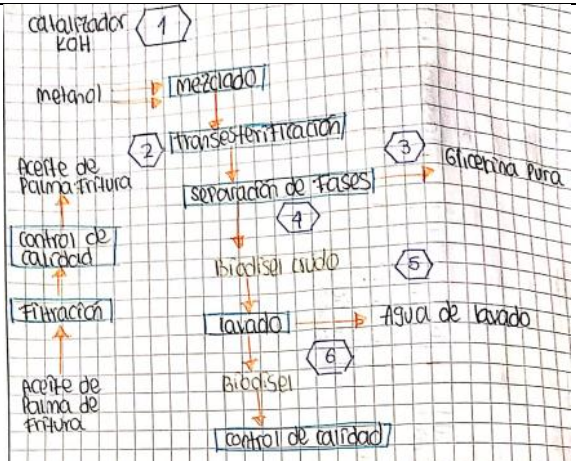 catalizador
KOH
1
metanol
mezclado
2
transesterificación
3
Glicerina Pura
Aceite de
Palma Fritura
separación de Fases
4
control de
calidad
Biodisel crudo
5
Filtración
lavado
Agua de lavado
6
Aceite de
Palma de
Fritura
Biodisel
control de calidad